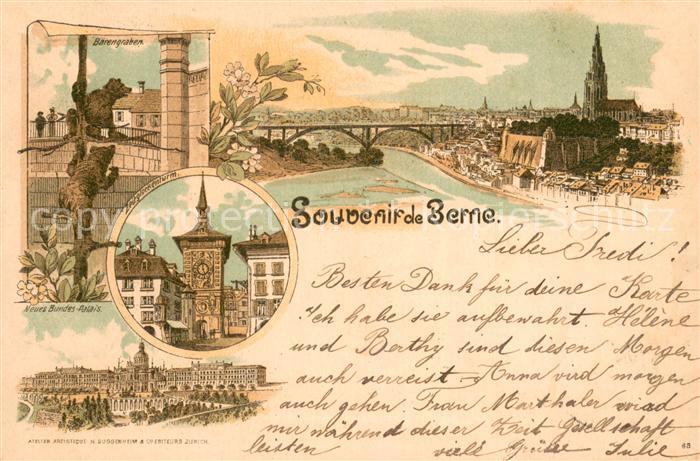 Bärengraben.
Zeitglockenturm.
Neues Bundes-Palais.
Souvenir de Berne.
Lieber Fredi!
Besten Dank für deine Karte
Ich habe sie aufbewahrt Hélène
und Berthy sind diesen Morgen
auch verreist. Anna wird morgen
auch gehen. Frau Marthaler wird
mir während dieser Zeit Gesellschaft
leisten viele Grüsse Julie
ATELIER ARTISTIQUE H. GUGGENHEIM & CO EDITEURS ZURICH.
63